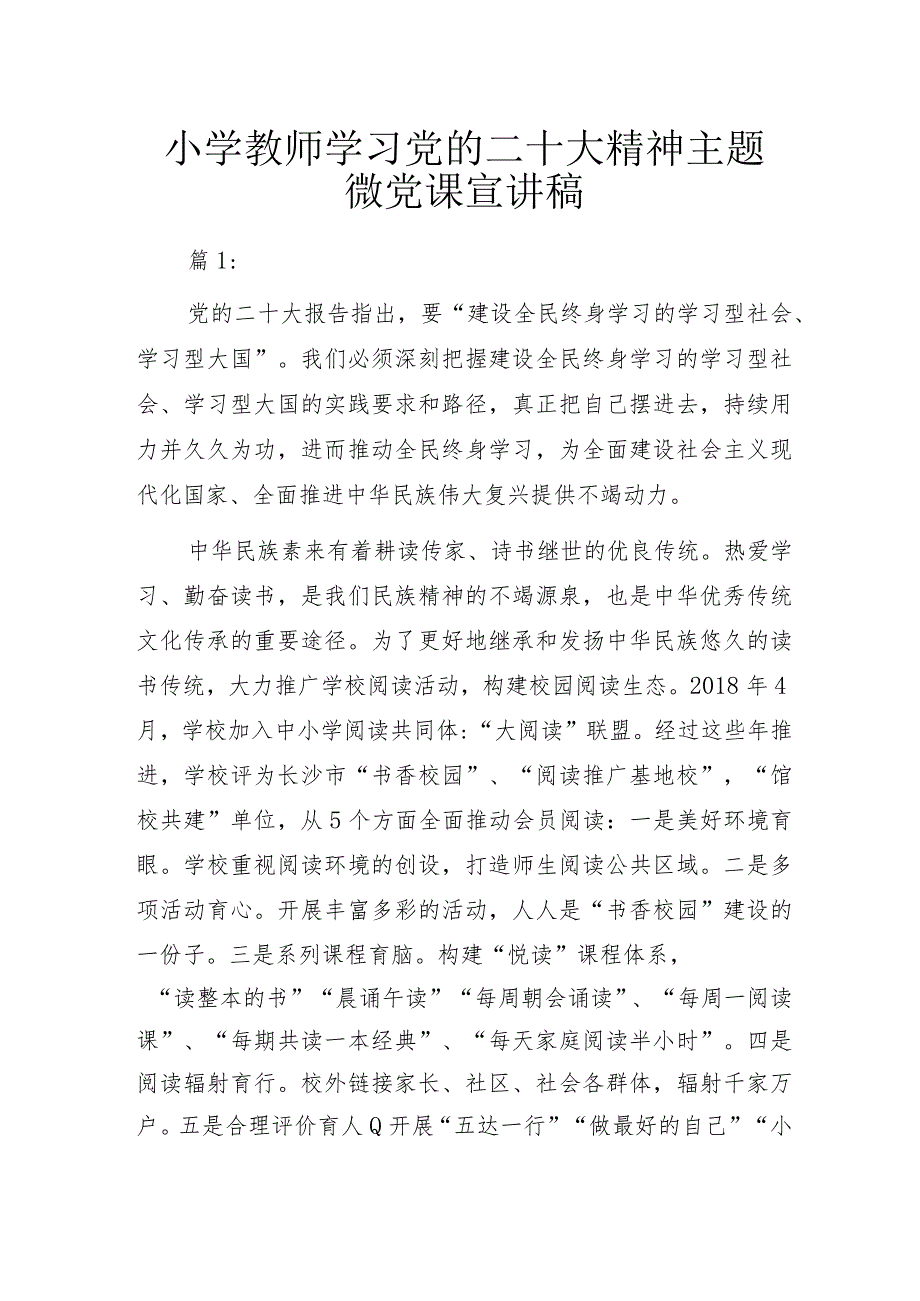 小学教师学习党的二十大精神主题
微党课宣讲稿
篇1:
党的二十大报告指出，要“建设全民终身学习的学习型社会、
学习型大国”。我们必须深刻把握建设全民终身学习的学习型社
会、学习型大国的实践要求和路径，真正把自己摆进去，持续用
力并久久为功，进而推动全民终身学习，为全面建设社会主义现
代化国家、全面推进中华民族伟大复兴提供不竭动力。
中华民族素来有着耕读传家、诗书继世的优良传统。热爱学
习、勤奋读书，是我们民族精神的不竭源泉，也是中华优秀传统
文化传承的重要途径。为了更好地继承和发扬中华民族悠久的读
书传统，大力推广学校阅读活动，构建校园阅读生态。2018年4
月，学校加入中小学阅读共同体:“大阅读”联盟。经过这些年推
进，学校评为长沙市“书香校园”、“阅读推广基地校”，“馆
校共建”单位，从5个方面全面推动会员阅读：一是美好环境育
眼。学校重视阅读环境的创设，打造师生阅读公共区域。二是多
项活动育心。开展丰富多彩的活动，人人是“书香校园”建设的
一份子。三是系列课程育脑。构建“悦读”课程体系，
“读整本的书”“晨诵午读”“每周朝会诵读”、“每周一阅读
课”、“每期共读一本经典”、“每天家庭阅读半小时”。四是
阅读辐射育行。校外链接家长、社区、社会各群体，辐射千家万
户。五是合理评价育人Q开展“五达一行”“做最好的自己”“小